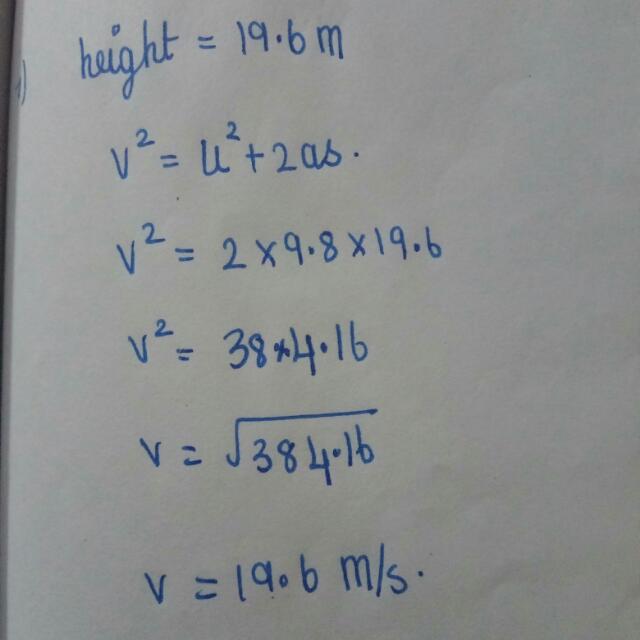 1) height = 19.6 m
v² = u² + 2as.
v² = 2 × 9.8 × 19.6
v² = 384.16
v = √384.16
v = 19.6 m/s.